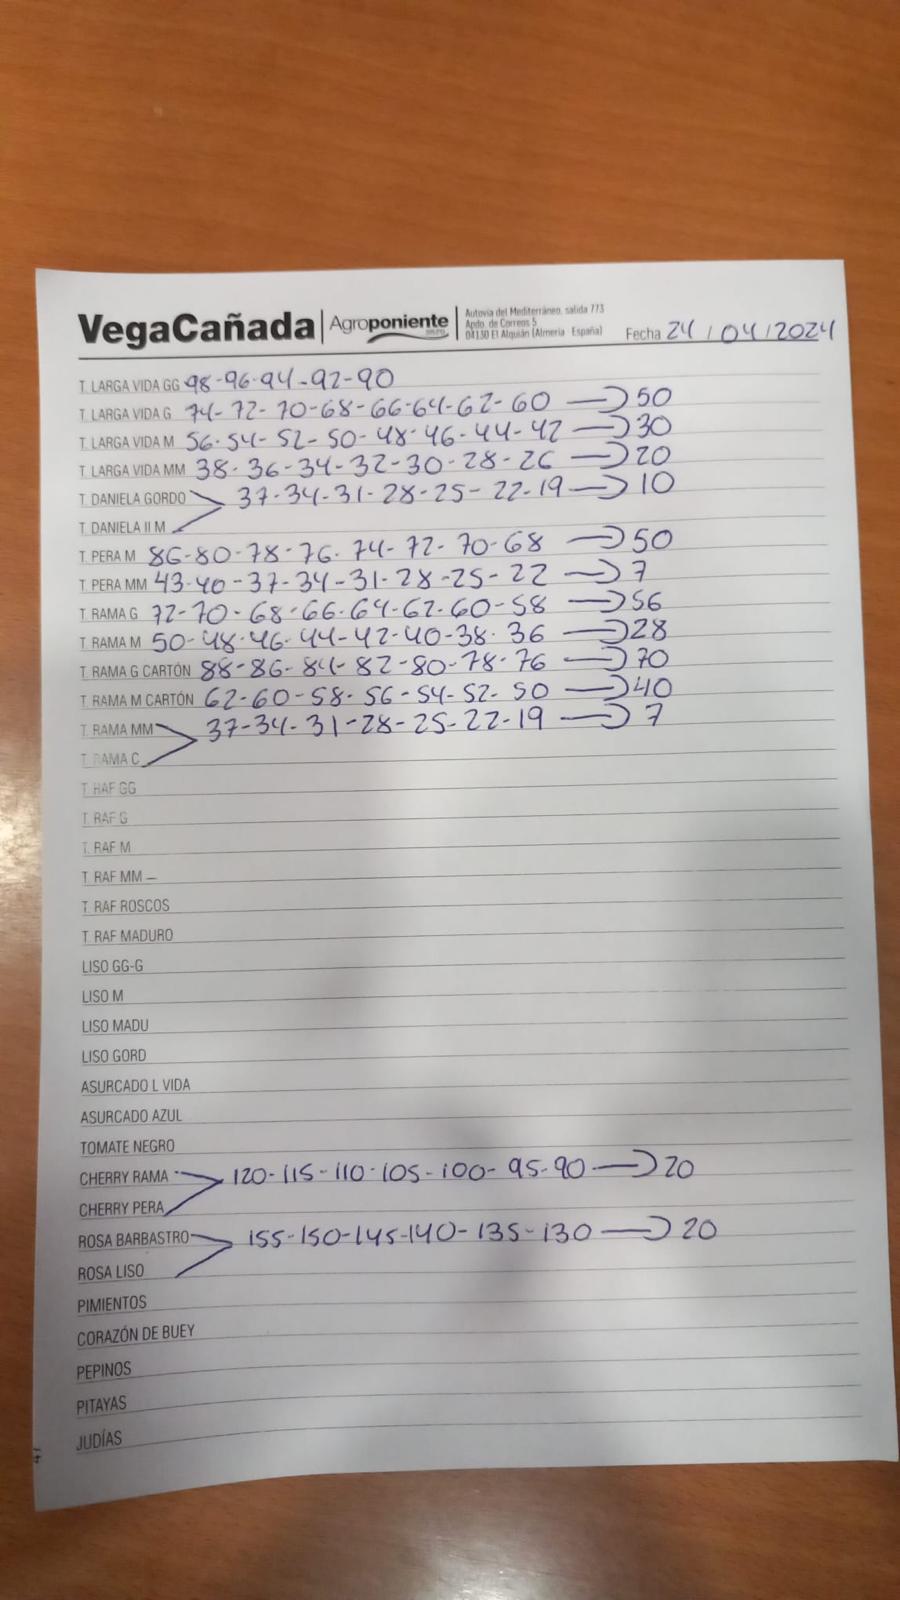 VegaCañada | Agroponiente GRUPO | Autovía del Mediterráneo, salida 773
Apdo. de Correos 5
04130 El Alquián (Almería · España)
Fecha 24 / 04 / 2024
T. LARGA VIDA GG 98-96-94-92-90
T. LARGA VIDA G 74-72-70-68-66-64-62-60 → 50
T. LARGA VIDA M 56-54-52-50-48-46-44-42 → 30
T. LARGA VIDA MM 38-36-34-32-30-28-26 → 20
T. DANIELA GORDO 37-34-31-28-25-22-19 → 10
T. DANIELA II M
T. PERA M 86-80-78-76-74-72-70-68 → 50
T. PERA MM 43-40-37-34-31-28-25-22 → 7
T. RAMA G 72-70-68-66-64-62-60-58 → 56
T. RAMA M 50-48-46-44-42-40-38-36 → 28
T. RAMA G CARTÓN 88-86-84-82-80-78-76 → 70
T. RAMA M CARTÓN 62-60-58-56-54-52-50 → 40
T. RAMA MM 37-34-31-28-25-22-19 → 7
T. RAMA C
T. RAF GG
T. RAF G
T. RAF M
T. RAF MM –
T. RAF ROSCOS
T. RAF MADURO
LISO GG-G
LISO M
LISO MADU
LISO GORD
ASURCADO L VIDA
ASURCADO AZUL
TOMATE NEGRO
CHERRY RAMA 120-115-110-105-100-95-90 → 20
CHERRY PERA
ROSA BARBASTRO 155-150-145-140-135-130 → 20
ROSA LISO
PIMIENTOS
CORAZÓN DE BUEY
PEPINOS
PITAYAS
JUDÍAS